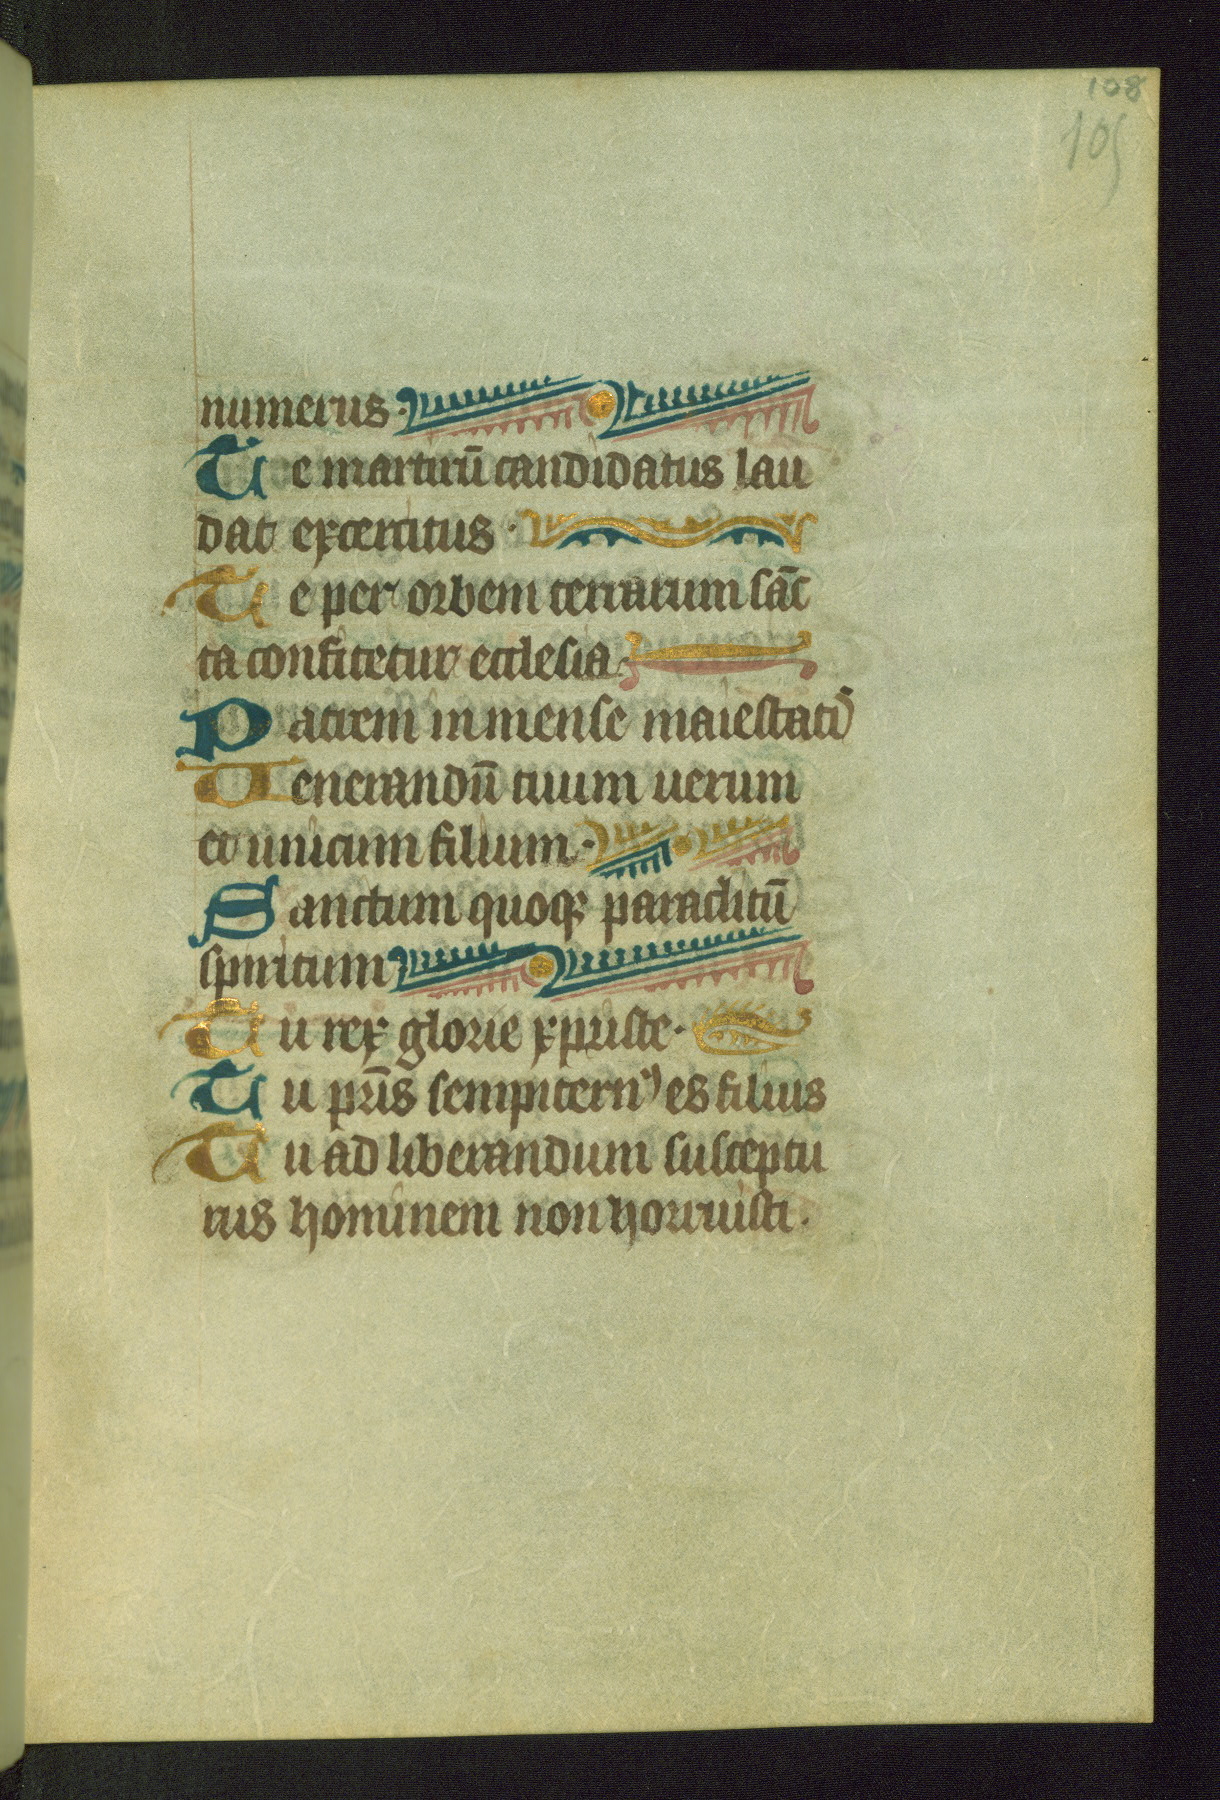 108
105
numerus ·
Te martirū candidatus lau
dat excercitus ·
Te per orbem terrarum sāc
ta confitetur ecclesia ·
Patrem inmense maiestatis
Uenerandū tuum uerum
et unicum filium ·
Sanctum quoqꝫ paraclitū
spiritum
Tu rex glorie xpriste ·
Tu pr̄is sempiternꝰ es filius
Tu ad liberandum susceptu
rus hominem non horruisti .